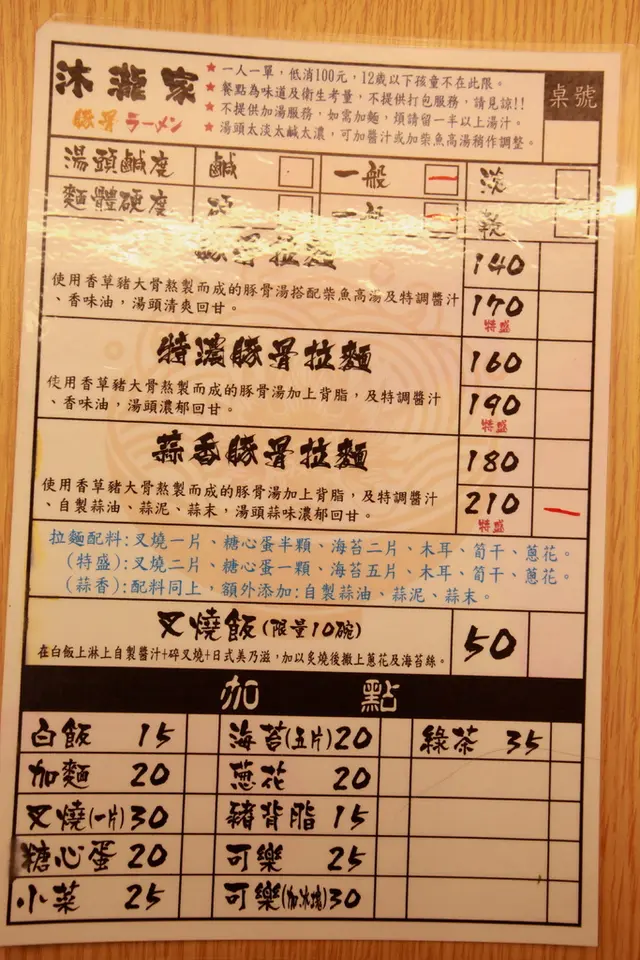 沐瀧家
豚骨ラーメン
★一人一單，低消100元，12歲以下孩童不在此限。
★餐點為味道及衛生考量，不提供打包服務，請見諒!!
★不提供加湯服務，如需加麵，煩請留一半以上湯汁。
★湯頭太淡太鹹太濃，可加醬汁或加柴魚高湯稍作調整。
桌號
湯頭鹹度 鹹 一般 淡
麵體硬度 硬 一般 軟
豚骨拉麵 140
使用香草豬大骨熬製而成的豚骨湯搭配柴魚高湯及特調醬汁
、香味油，湯頭清爽回甘。
170
特盛
特濃豚骨拉麵 160
使用香草豬大骨熬製而成的豚骨湯加上背脂，及特調醬汁
、香味油，湯頭濃郁回甘。
190
特盛
蒜香豚骨拉麵 180
使用香草豬大骨熬製而成的豚骨湯加上背脂，及特調醬汁
、自製蒜油、蒜泥、蒜末，湯頭蒜味濃郁回甘。
210
特盛
拉麵配料:叉燒一片、糖心蛋半顆、海苔二片、木耳、筍干、蔥花。
(特盛):叉燒二片、糖心蛋一顆、海苔五片、木耳、筍干、蔥花。
(蒜香):配料同上，額外添加:自製蒜油、蒜泥、蒜末。
叉燒飯(限量10碗) 50
在白飯上淋上自製醬汁+碎叉燒+日式美乃滋，加以炙燒後撒上蔥花及海苔絲。
加 點
白飯 15 海苔(五片)20 綠茶 35
加麵 20 蔥花 20
叉燒(一片)30 豬背脂 15
糖心蛋 20 可樂 25
小菜 25 可樂(加冰塊)30